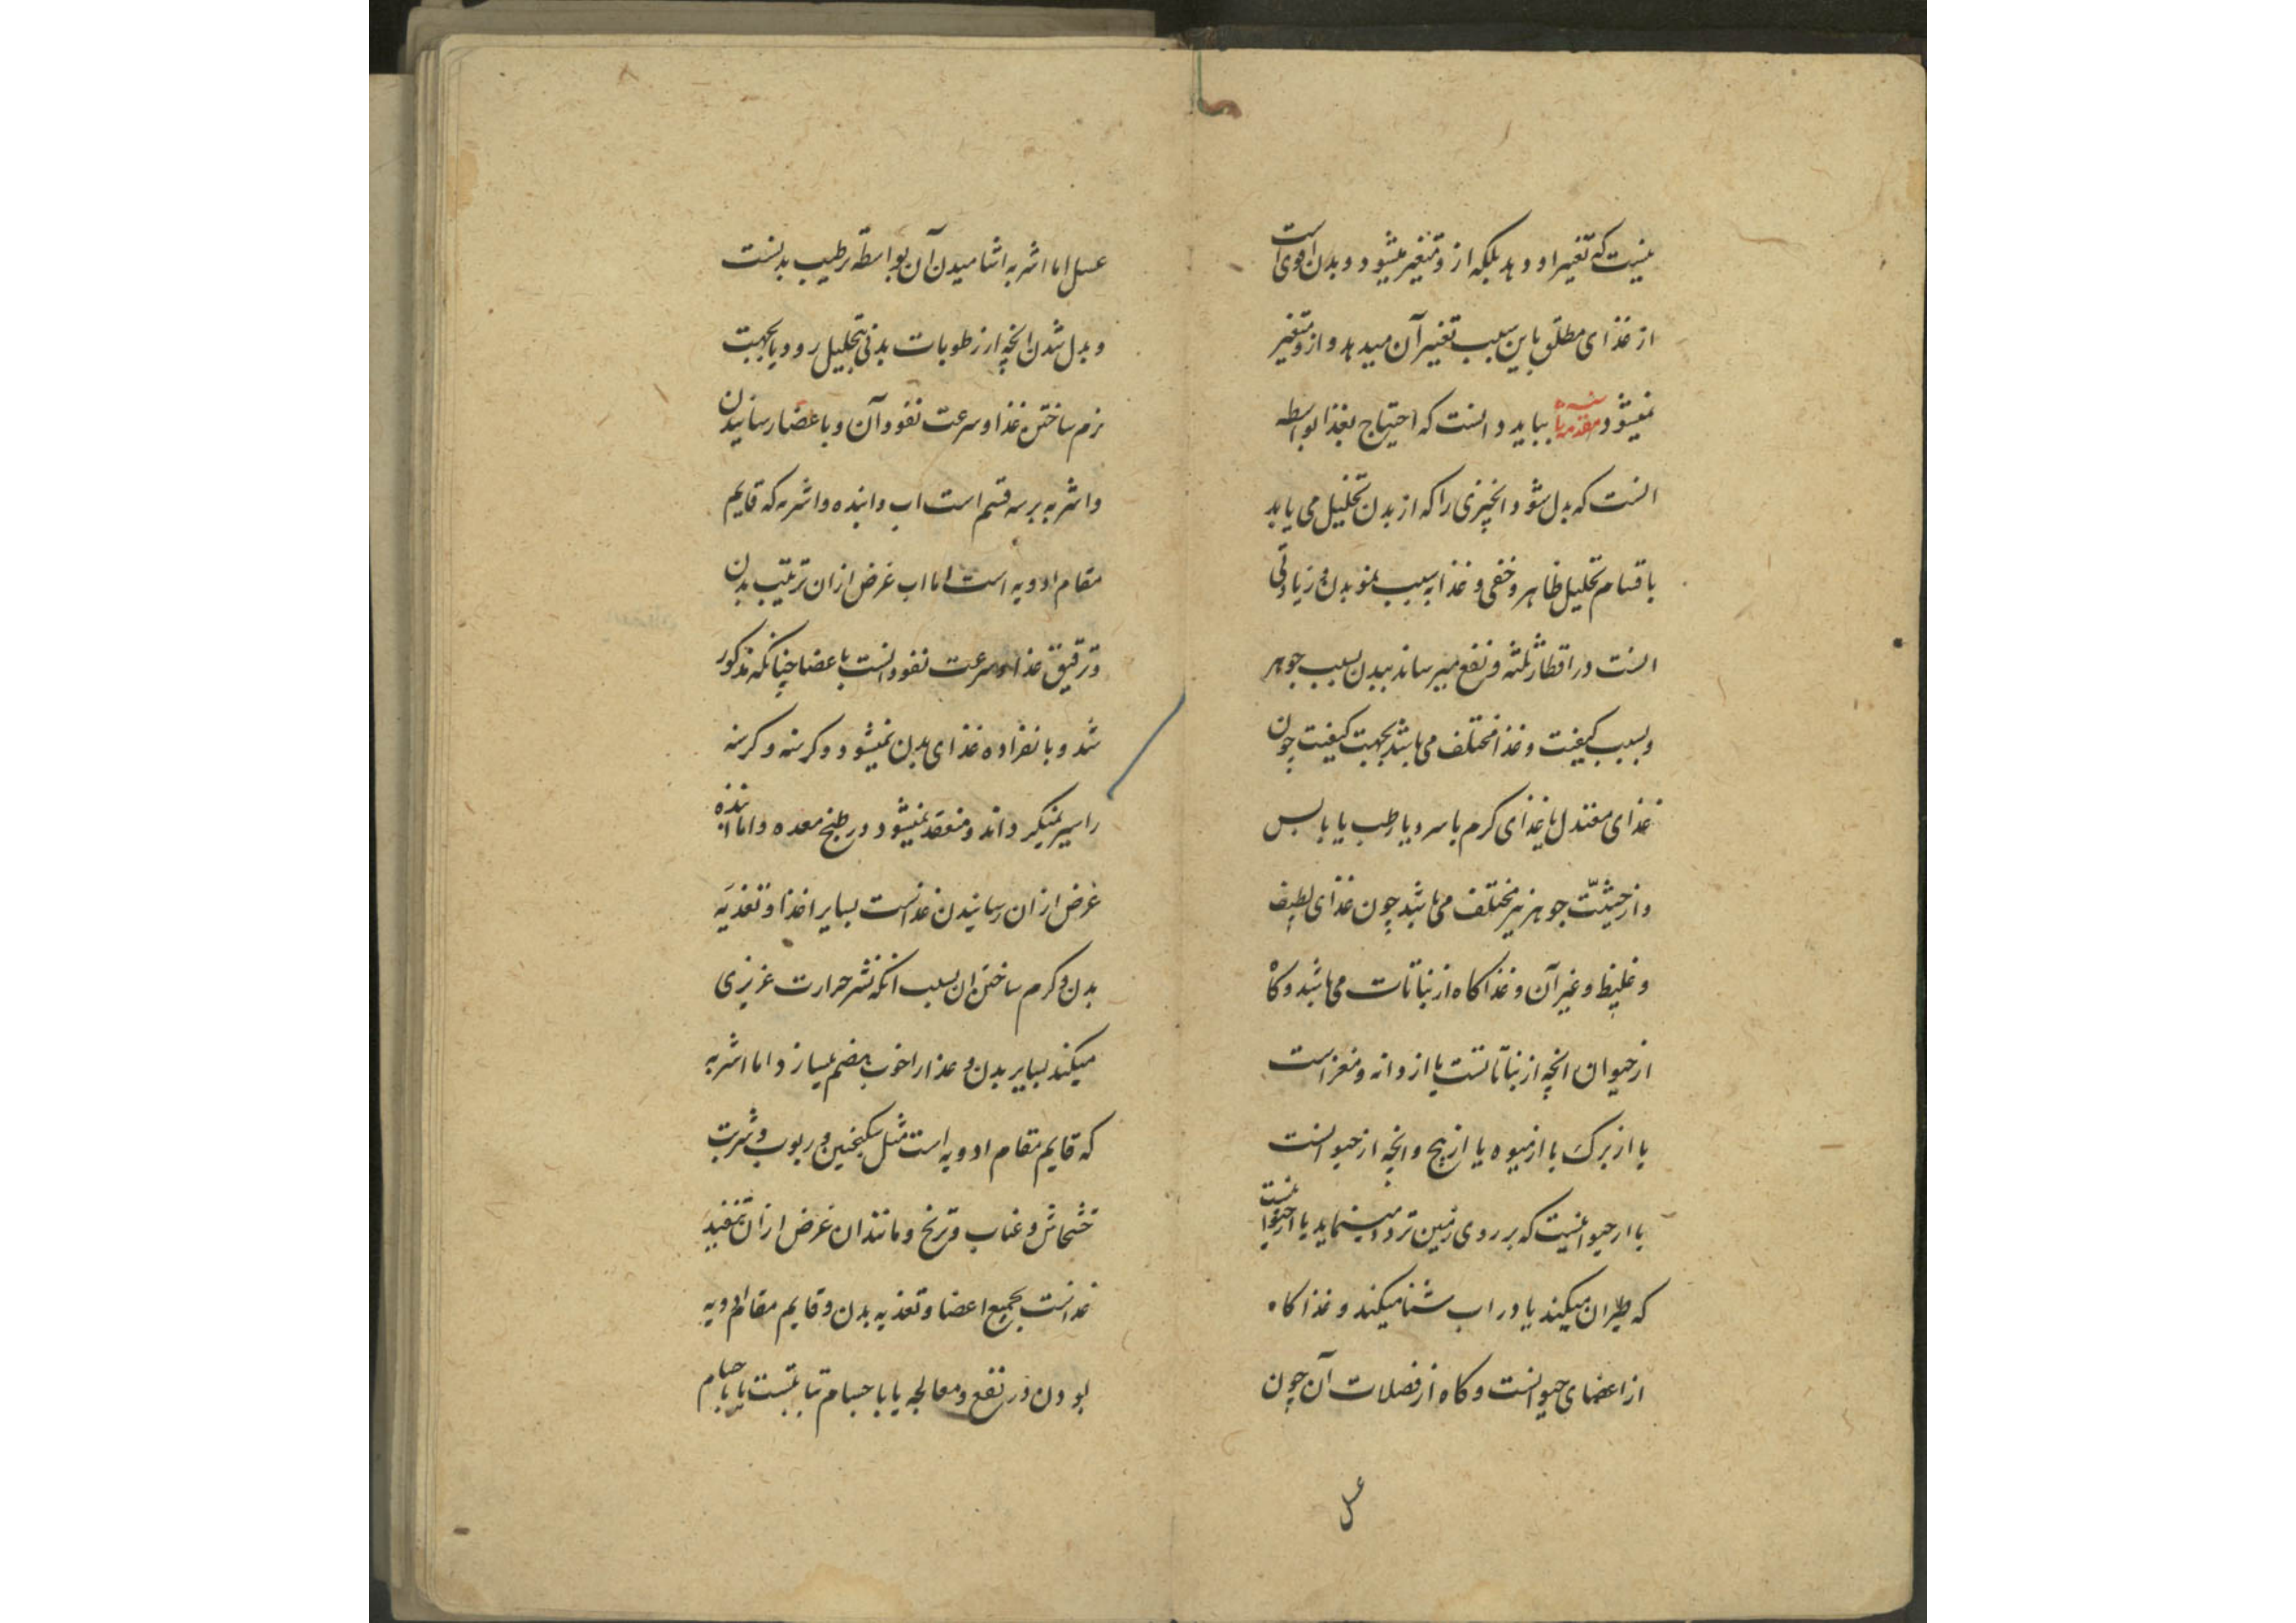 نیست که تغییر او دهد بلکه ازو متغیر میشود و بدن اقوی است
از غذای مطلق باین سبب تغییر آن میدهد و ازو متغیر
نمیشود بباید دانست که احتیاج بغذا بواسطه
انست که بدل شود انچیزی را که از بدن تحلیل می یابد
باقسام تحلیل ظاهر و خفی و غذا سبب نمو بدن و زیادتی
انست در اقطار ثلثه و نفع میرساند ببدن بسبب جوهر
و بسبب کیفیت و غذا مختلف می باشد بجهت کیفیت چون
غذای معتدل یا غذای کرم یا سرد یا رطب یا یابس
و از حیثیّت جوهر نیز مختلف می باشد چون غذای لطیف
و غلیظ و غیر آن و غذا کاه از نباتات می باشد و کاه
از حیوان انچه از نباتاتست یا از دانه و مغز است
یا از برک یا از میوه یا از بیخ و انچه از حیوانست
یا از حیوانیست که بر روی زمین تردد مینماید یا از حیوانیست
که طیران میکند یا در اب شنا میکند و غذا کاه
از اعضای حیوانست و کاه از فضلات آن چون
عسل
عسل اما اشربه اشامیدن آن بواسطه ترطیب بدنست
و بدل شدن انچه از رطوبات بدنی بتحلیل رود یا بجهت
نرم ساختن غذا و سرعت نفوذ آن و باعضا رسانیدن
و اشربه بر سه قسم است اب و انبذه و اشربه که قایم
مقام ادویه است اما اب غرض ازان ترتیب بدن
و ترقیق غذا و سرعت نفوذ انست باعضا چنانکه مذکور
شد و بانفراده غذای بدن نمیشود و کرسنه و کرسنه
را سیر نمیکرداند و منعقد نمیشود در طبخ معده و اما انبذه
غرض ازان رسانیدن غذاست بسایر اعضا و تغذیه
بدن و کرم ساختن ان بسبب انکه نشر حرارت غریزی
میکند بسایر بدن و غذا را خوب هضم میسازد و اما اشربه
که قایم مقام ادویه است مثل سکنجبین و ربوب و شربت
خشخاش و عناب و ترنج و مانند ان غرض ازان تنفیذ
غذاست بجمیع اعضا و تغذیه بدن و قایم مقام ادویه
بودن در نفع و معالجه یا باجسام یا باجسام